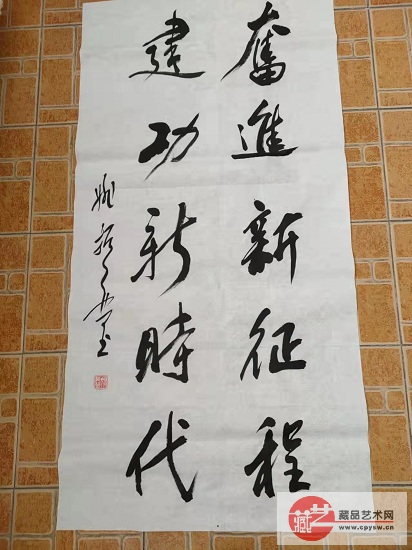 奮進新征程
建功新時代
藏艺
藏品艺术网
www.cpysw.cn